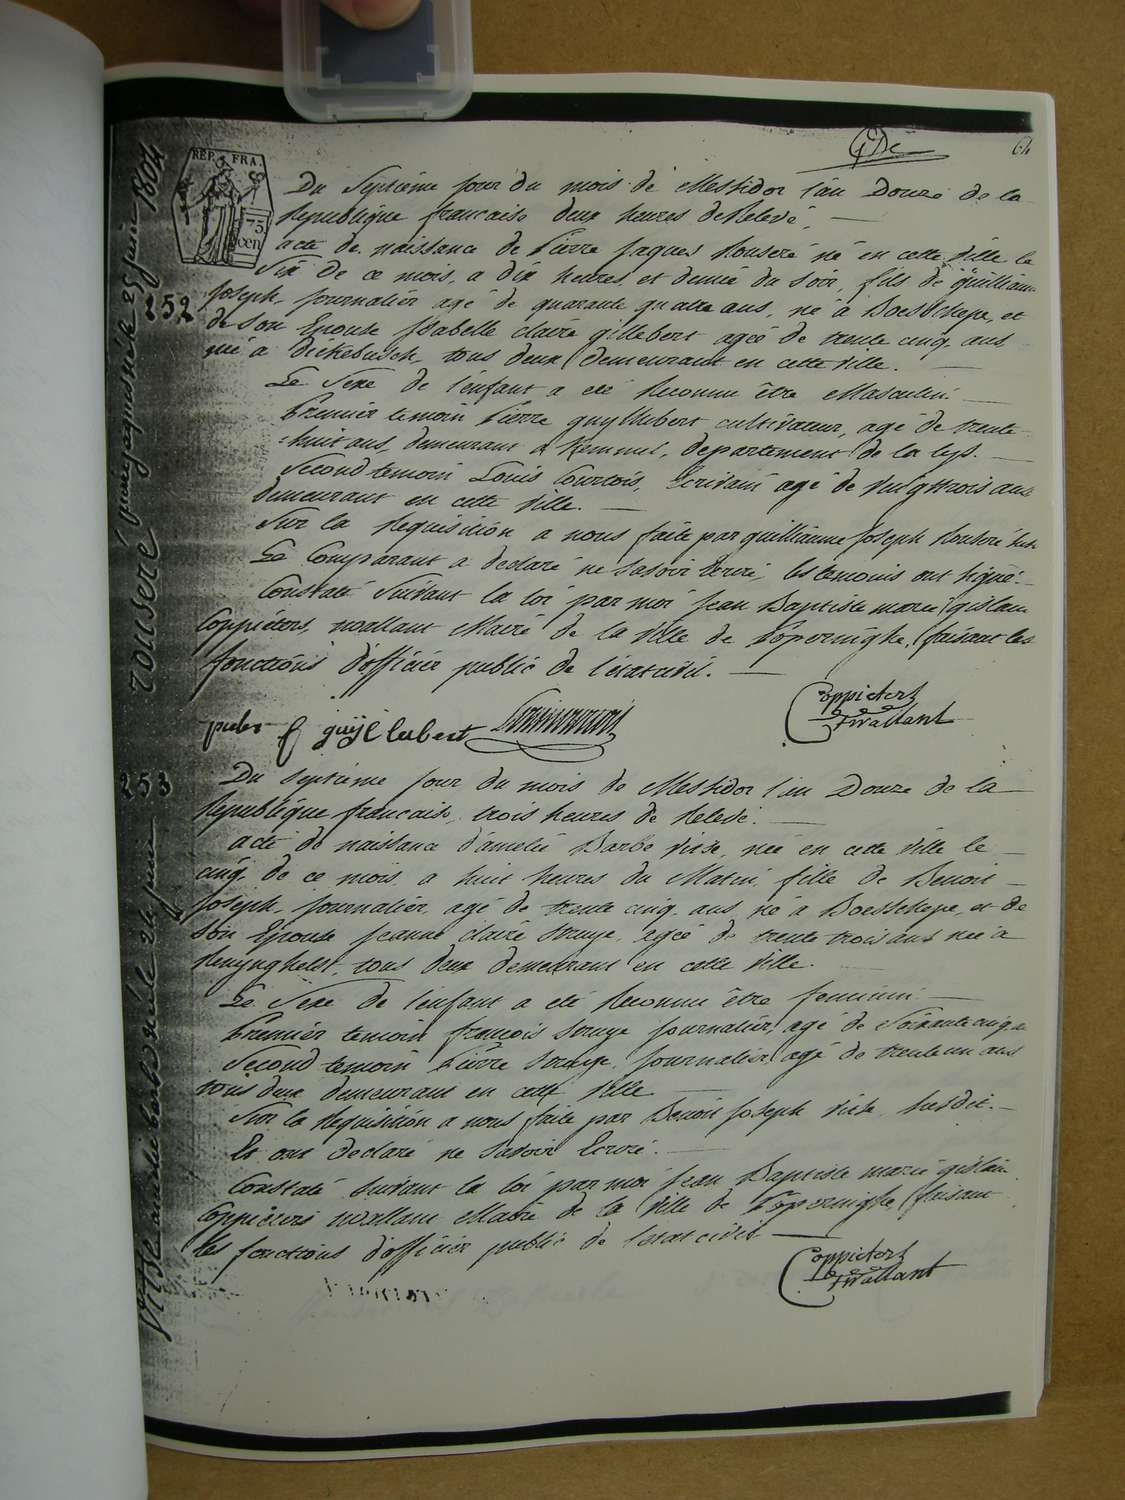 G De
64
REP. FRA.
75
cen
Du Septième jour du mois de Messidor l'an Douze de la
Republique francaise deux heures de Relevé,
acte de naissance de Pierre Jaques Rouseré né en cette ville le
Six de ce mois, a dix heures et demie du soir, fils de guilliaume
Joseph, journalier agé de quarante quatre ans, né à Boesschepe, et
de son Epouse Isabelle claire gillebert agée de trente cinq ans
née à Dickebusch, tous deux demeurant en cette ville.
Le Sexe de l'enfant a eté Reconnu être Masculin.
Premier temoin Pierre guyllubert cultivateur, agé de trente
huit ans, demeurant à Kemmel, departement de la lys.
Second temoin Louis Courtois, Ecrivain agé de vingt trois ans
demeurant en cette ville.
Sur la Requisition a nous faite par guilliaume Joseph Rouseré susd.
Le Comparant a declaré ne savoir Ecrire, les temoins ont signé.
Constaté Suivant la loi par moi Jean Baptiste marie gislain
Coppieters, wallant Maire de la Ville de Poperinghe, faisant les
fonctions d'officier public de l'etat civil.
guÿllubert
Coppieters
Twallant
252
rouseré pier jaques né le 25 juin 1804
Du Septième jour du mois de Messidor l'an Douze de la
Republique francaise, trois heures de Relevé.
acte de naissance d'amelie Barbe Vitse, née en cette ville le
cinq de ce mois, a huit heures du Matin, fille de Benoit
Joseph, journalier, agé de trente cinq ans né à Boesschepe, et de
son Epouse Jeanne claire Struye, agée de trente trois ans née a
Renynghelst, tous deux demeurant en cette ville.
Le Sexe de l'enfant a eté Reconnu être feminin.
Premier temoin françois Struye journalier, agé de Soixante cinq ans
Second temoin Pierre Struye, journalier, agé de trente un ans
tous deux demeurant en cette ville
Sur la Requisition a nous faite par Benoit Joseph Vitse susdit.
Et ont declaré ne savoir Ecrire.
Constaté Suivant la loi par moi Jean Baptiste marie gislain
Coppieters wallant Maire de la Ville de Poperinghe, faisant
les fonctions d'officier public de l'etat civil
Coppieters
Twallant
253
Vitse amelie barbe née le 24 juin